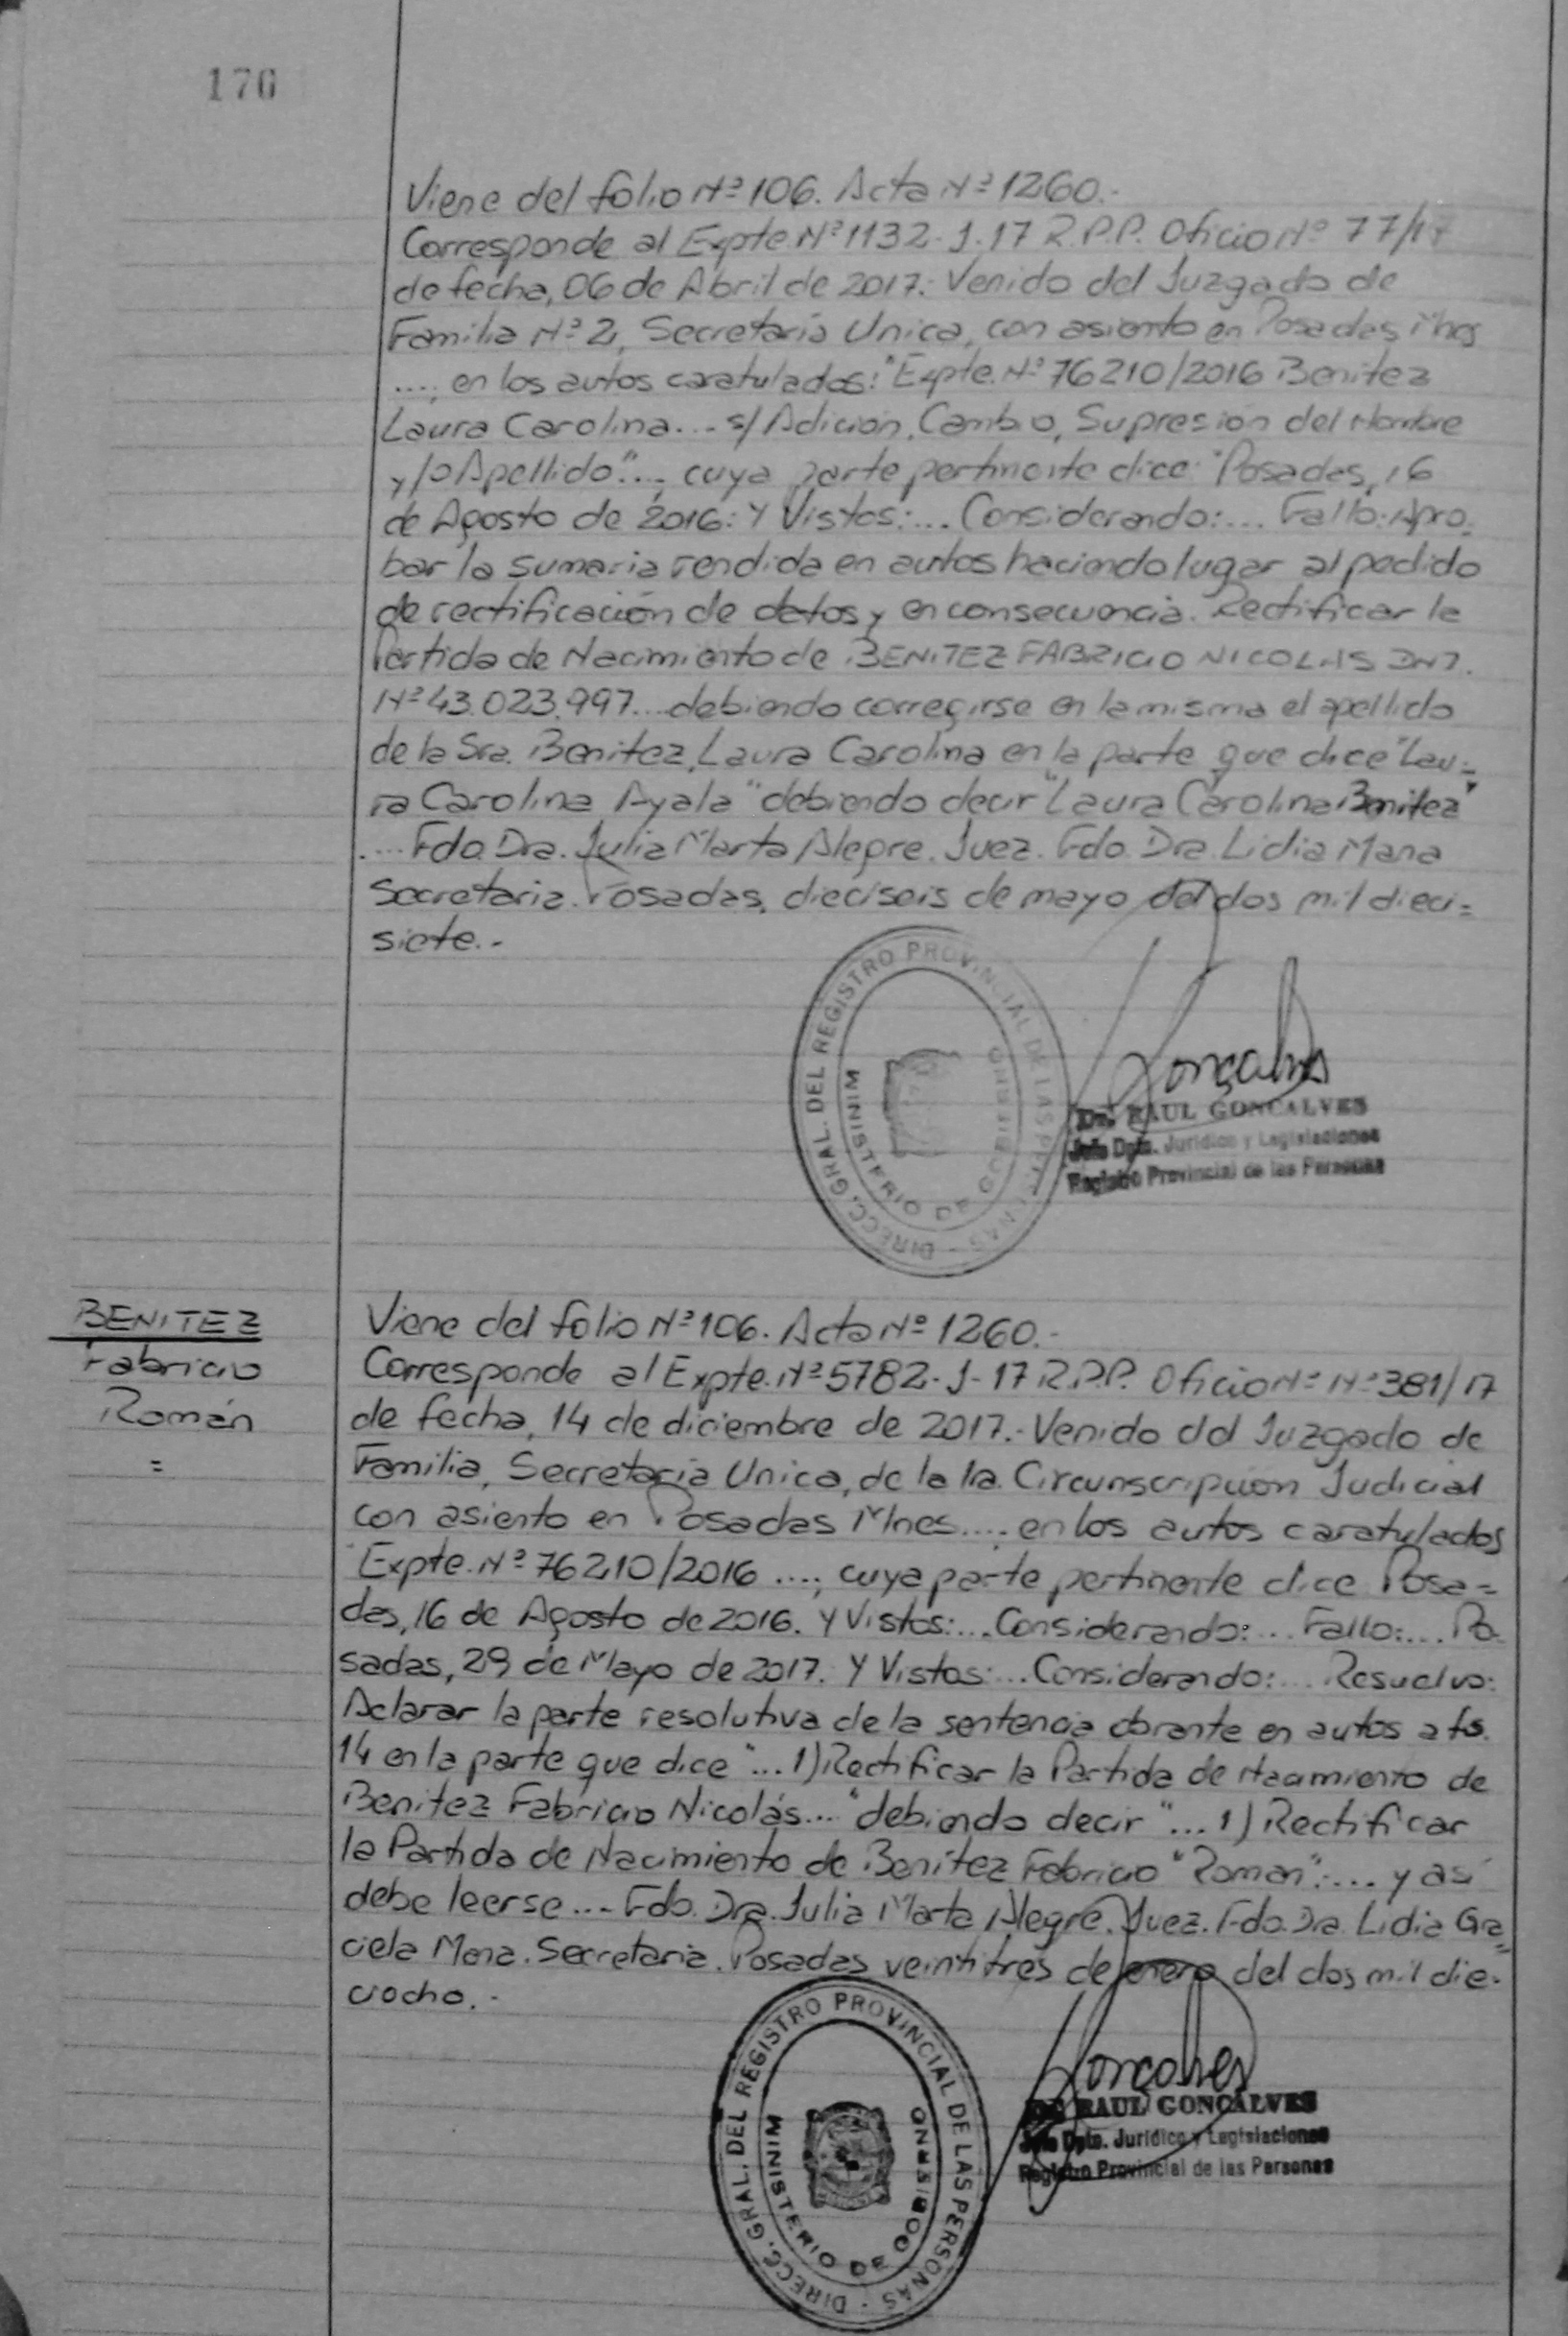 170
Viene del folio Nº 106. Acta Nº 1260.-
Corresponde al Expte. Nº 1132-J-17 R.P.P. Oficio Nº 77/17
de fecha, 06 de Abril de 2017.- Venido del Juzgado de
Familia Nº 2, Secretaría Unica, con asiento en Posadas Mnes
....; en los autos caratulados: "Expte. Nº 76210/2016 Benitez
Laura Carolina... s/ Adición, Cambio, Supresión del Nombre
y/o Apellido"...; cuya parte pertinente dice: "Posadas, 16
de Agosto de 2016: Y Vistos:... Considerando:... Fallo: Apro-
bar la sumaria rendida en autos haciendo lugar al pedido
de rectificación de datos y en consecuencia. Rectificar la
Partida de Nacimiento de BENITEZ FABRICIO NICOLAS DNI.
Nº 43.023.997....debiendo corregirse en la misma el apellido
de la Sra. Benitez, Laura Carolina en la parte que dice "Lau=
ra Carolina Ayala" debiendo decir "Laura Carolina Benitez"
.... Fdo. Dra. Julia Marta Alegre. Juez. Fdo. Dra. Lidia Mana
Secretaria. Posadas, dieciseis de mayo del dos mil dieci=
siete.-
DIRECC. GRAL. DEL REGISTRO PROVINCIAL DE LAS PERSONAS -
MINISTERIO DE GOBIERNO
Goncalves
Dr. RAUL GONCALVES
Jefe Dpto. Jurídico y Legislaciones
Registro Provincial de las Personas
BENITEZ
Fabricio
Román
=
Viene del folio Nº 106. Acta Nº 1260.-
Corresponde al Expte. Nº 5782-J-17 R.P.P. Oficio Nº Nº 381/17
de fecha, 14 de diciembre de 2017.- Venido del Juzgado de
Familia, Secretaría Unica, de la 1ra. Circunscripción Judicial
con asiento en Posadas Mnes....; en los autos caratulados
"Expte. Nº 76210/2016 ....; cuya parte pertinente dice Posa=
das, 16 de Agosto de 2016. Y Vistos:... Considerando:... Fallo:... Po-
sadas, 29 de Mayo de 2017. Y Vistos:... Considerando:... Resuelvo:
Aclarar la parte resolutiva de la sentencia obrante en autos a fs.
14 en la parte que dice "... 1) Rectificar la Partida de Nacimiento de
Benitez Fabricio Nicolás..." debiendo decir "... 1) Rectificar
la Partida de Nacimiento de Benítez Fabricio "Roman":.... y así
debe leerse.... Fdo. Dra. Julia Marta Alegre. Juez. Fdo. Dra. Lidia Gra=
ciela Mana. Secretaria. Posadas veintitrés de enero del dos mil die-
ciocho.-
DIRECC. GRAL. DEL REGISTRO PROVINCIAL DE LAS PERSONAS -
MINISTERIO DE GOBIERNO
Goncalves
Dr. RAUL GONCALVES
Jefe Dpto. Jurídico y Legislaciones
Registro Provincial de las Personas